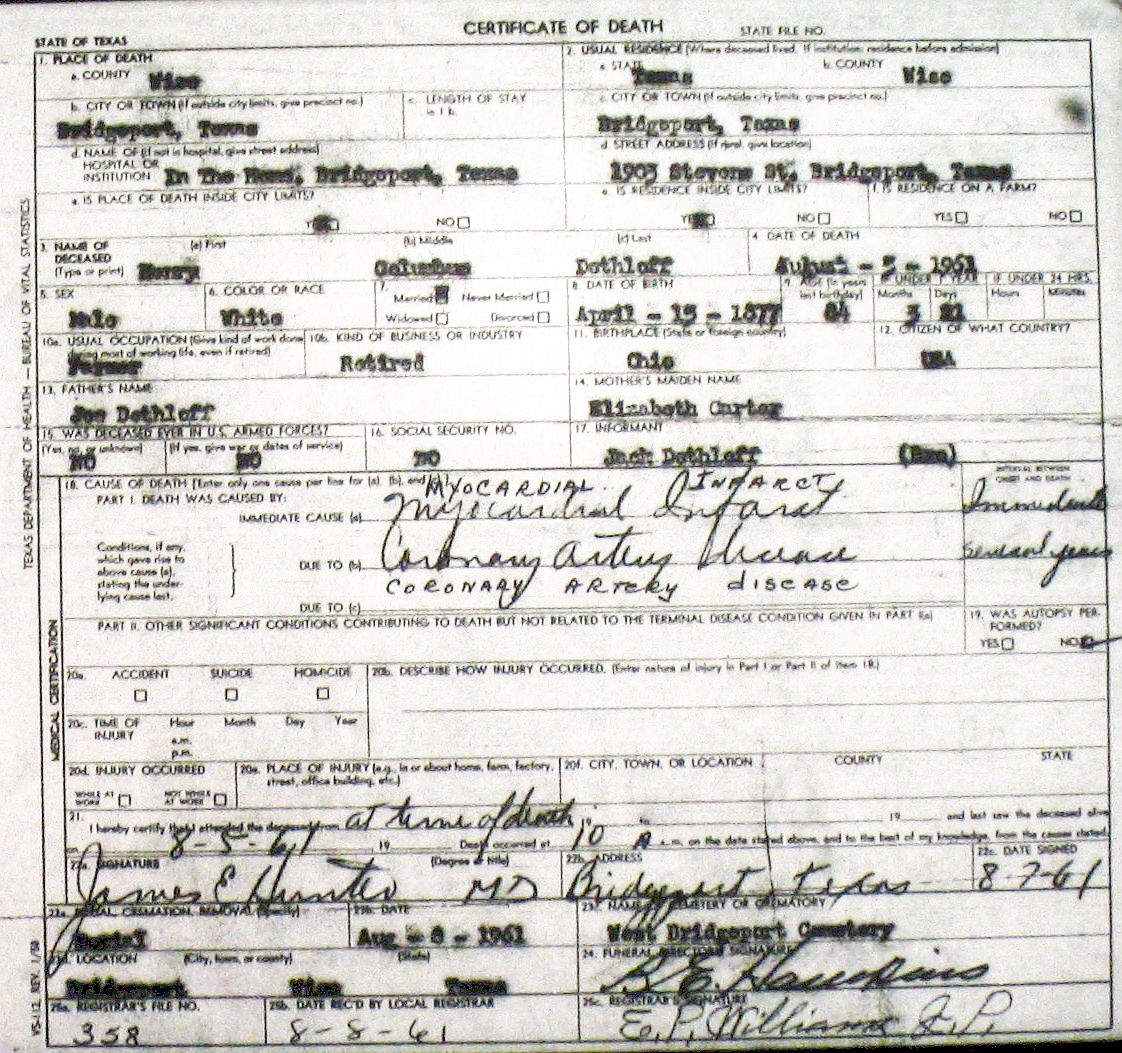 CERTIFICATE OF DEATH
STATE OF TEXAS STATE FILE NO.
1. PLACE OF DEATH
a. COUNTY Wise
2. USUAL RESIDENCE (Where deceased lived. If institution: residence before admission)
a. STATE Texas b. COUNTY Wise
b. CITY OR TOWN (If outside city limits, give precinct no.)
Bridgeport, Texas
c. LENGTH OF STAY in 1 b.
c. CITY OR TOWN (If outside city limits, give precinct no.)
Bridgeport, Texas
d. NAME OF (If not in hospital, give street address)
HOSPITAL OR
INSTITUTION In The Home, Bridgeport, Texas
d. STREET ADDRESS (If rural, give location)
1903 Stevens St, Bridgeport, Texas
e. IS PLACE OF DEATH INSIDE CITY LIMITS?
YES NO
e. IS RESIDENCE INSIDE CITY LIMITS?
YES NO
f. IS RESIDENCE ON A FARM?
YES NO
3. NAME OF DECEASED (Type or print)
(a) First (b) Middle (c) Last
Henry Columbus Dethloff
4. DATE OF DEATH
August - 5 - 1961
5. SEX
Male
6. COLOR OR RACE
White
7.
Married Never Married
Widowed Divorced
8. DATE OF BIRTH
April - 15 - 1877
9. AGE (In years last birthday)
84
IF UNDER 1 YEAR
Months Days
3 21
IF UNDER 24 HRS.
Hours Minutes
10a. USUAL OCCUPATION (Give kind of work done during most of working life, even if retired)
Farmer
10b. KIND OF BUSINESS OR INDUSTRY
Retired
11. BIRTHPLACE (State or foreign country)
Ohio
12. CITIZEN OF WHAT COUNTRY?
USA
13. FATHER'S NAME
Joe Dethloff
14. MOTHER'S MAIDEN NAME
Elizabeth Carter
15. WAS DECEASED EVER IN U.S. ARMED FORCES?
(Yes, no, or unknown) (If yes, give war or dates of service)
NO NO
16. SOCIAL SECURITY NO.
NO
17. INFORMANT
Jack Dethloff (Son)
18. CAUSE OF DEATH [Enter only one cause per line for (a), (b), and (c)]
PART I. DEATH WAS CAUSED BY:
MYOCARDIAL INFARCT
IMMEDIATE CAUSE (a) Myocardial Infarct
INTERVAL BETWEEN ONSET AND DEATH
Immediate
Conditions, if any, which gave rise to above cause (a), stating the underlying cause last.
DUE TO (b) Coronary Artery Disease
several years
CORONARY ARTERY DISEASE
DUE TO (c)
PART II. OTHER SIGNIFICANT CONDITIONS CONTRIBUTING TO DEATH BUT NOT RELATED TO THE TERMINAL DISEASE CONDITION GIVEN IN PART I(a)
19. WAS AUTOPSY PERFORMED?
YES NO
20a. ACCIDENT SUICIDE HOMICIDE
20b. DESCRIBE HOW INJURY OCCURRED. (Enter nature of injury in Part I or Part II of item 18.)
20c. TIME OF INJURY Hour Month Day Year
a.m.
p.m.
20d. INJURY OCCURRED
WHILE AT WORK NOT WHILE AT WORK
20e. PLACE OF INJURY (e.g., in or about home, farm, factory, street, office building, etc.)
20f. CITY, TOWN, OR LOCATION COUNTY STATE
21.
I hereby certify that I attended the deceased from at time of death 19 to 19 and last saw the deceased alive
on 8-5-61 19 Death occurred at 10 A m. on the date stated above, and to the best of my knowledge, from the causes stated.
22a. SIGNATURE (Degree or title)
James E Hunter MD
22b. ADDRESS
Bridgeport, Texas
22c. DATE SIGNED
8-7-61
23a. BURIAL, CREMATION, REMOVAL (Specify)
Burial
23b. DATE
Aug - 8 - 1961
23c. NAME OF CEMETERY OR CREMATORY
West Bridgeport Cemetery
23d. LOCATION (City, town, or county) (State)
Bridgeport Wise Texas
24. FUNERAL DIRECTOR'S SIGNATURE
B.E. Hawkins
25a. REGISTRAR'S FILE NO.
358
25b. DATE REC'D BY LOCAL REGISTRAR
8-8-61
25c. REGISTRAR'S SIGNATURE
E.P. Williams J.P.
TEXAS DEPARTMENT OF HEALTH — BUREAU OF VITAL STATISTICS
MEDICAL CERTIFICATION
VS-112 REV. 1/58